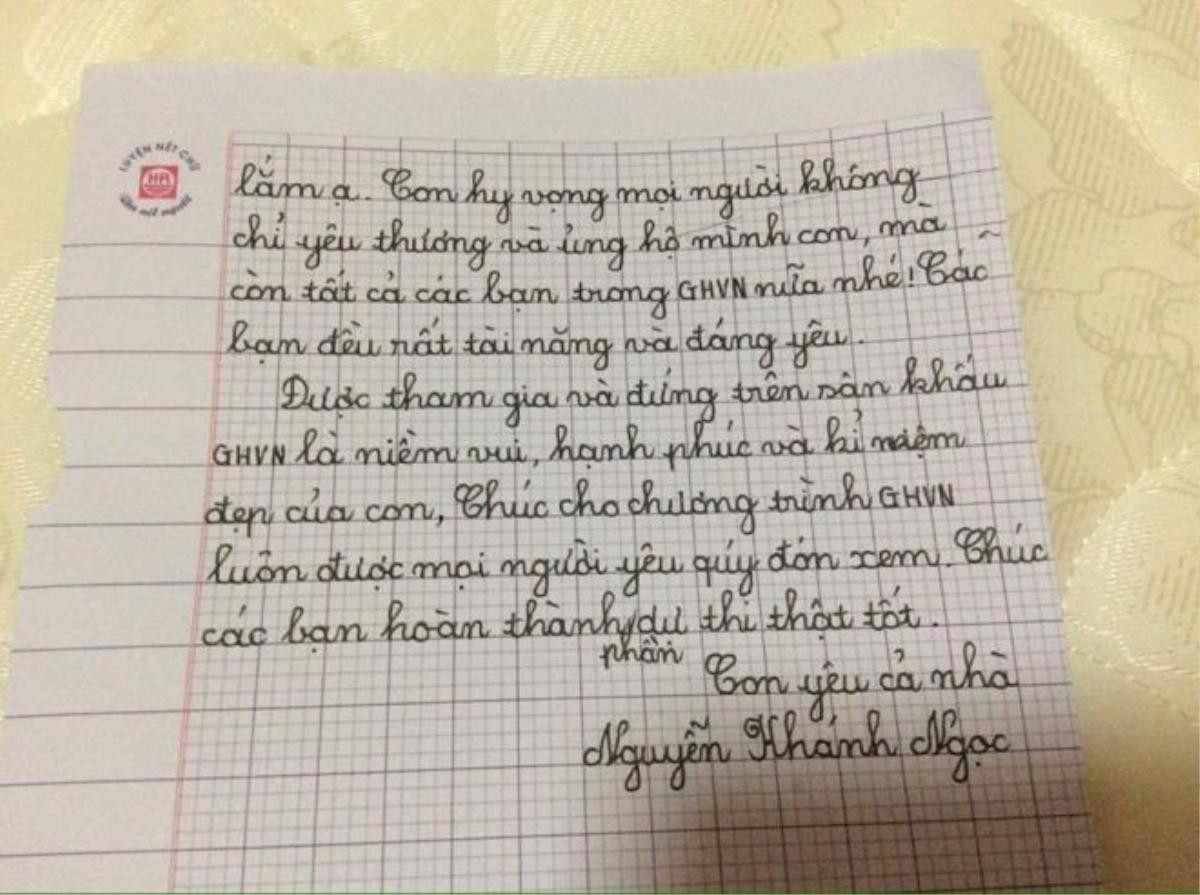 LUYỆN NÉT CHỮ
HA
lắm ạ. Con hy vọng mọi người không
chỉ yêu thương và ủng hộ mình con, mà
còn tất cả các bạn trong GHVN nữa nhé! Các
bạn đều rất tài năng và đáng yêu.
Được tham gia và đứng trên sân khấu
GHVN là niềm vui, hạnh phúc và kỉ niệm
đẹp của con, Chúc cho chương trình GHVN
luôn được mọi người yêu quý đón xem. Chúc
các bạn hoàn thành/dự thi thật tốt.
phần
Con yêu cả nhà
Nguyễn Khánh Ngọc